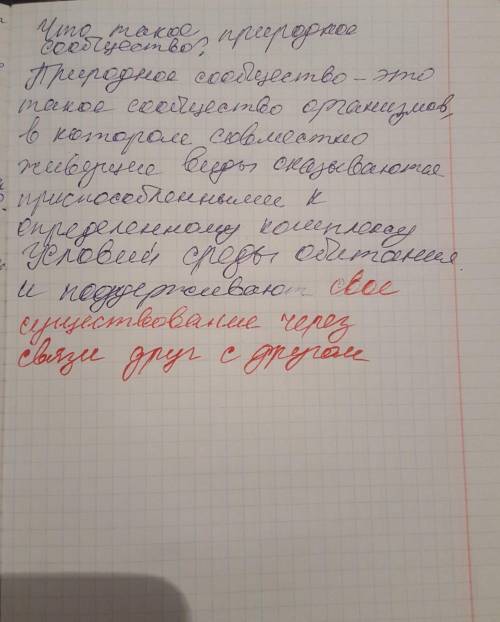 Что такое природное
сообщество?
Природное сообщество – это
такое сообщество организмов,
в котором совместно
живущие виды оказываются
приспособленными к
определенному комплексу
условий среды обитания
и поддерживают свое
существование через
связи друг с другом